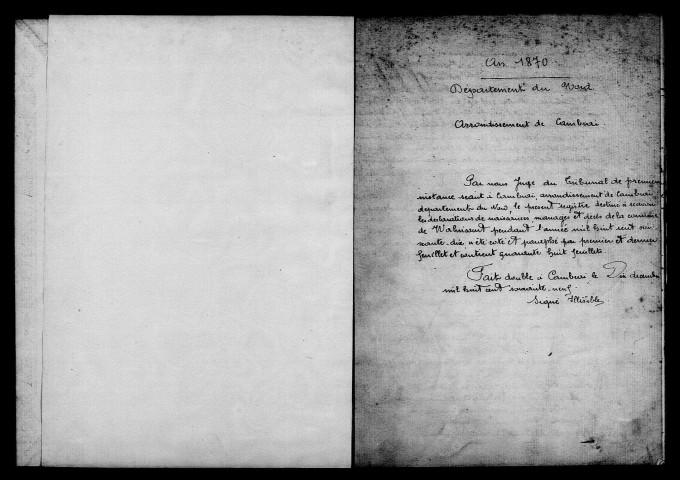 An 1870
Département du Nord
Arrondissement de Cambrai.
Par nous Juge du Tribunal de première
instance séant à Cambrai, arrondissement de Cambrai,
département du Nord, le présent registre destiné à recevoir
les déclarations de naissances, mariages et décès de la commune
de Walincourt pendant l'année mil huit cent soi-
xante-dix a été coté et paraphé par premier et dernier
feuillet et contient quarante huit feuillets.
Fait double à Cambrai le Dix décembre
mil huit cent soixante-neuf
Signé Illisible